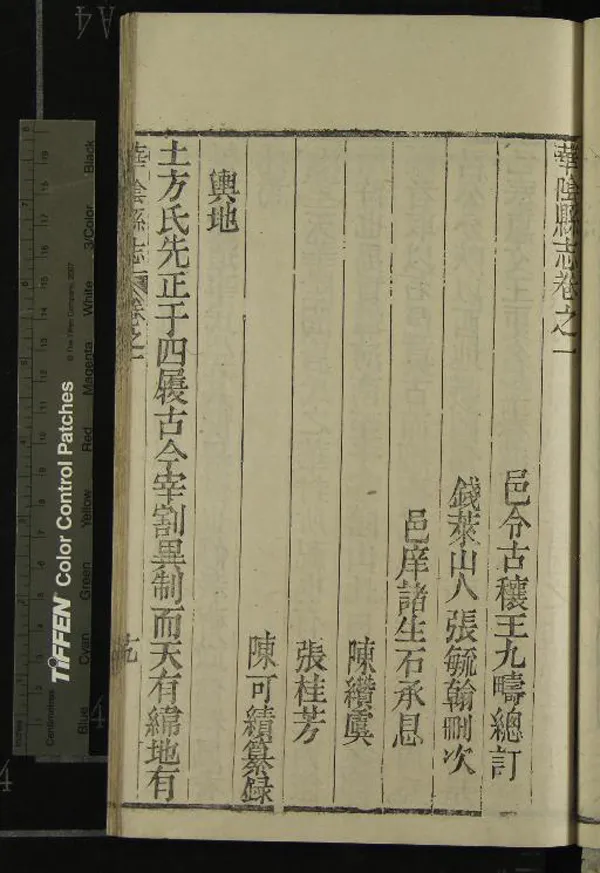 華陰縣志卷之一
邑令古穰王九疇總訂
錢萊山人張毓翰刪次
邑庠諸生石承恩
陳纘虞
張桂芳
陳可績纂錄
輿地
土方氏先正于四履古今宰割異制而天有緯地有
華陰縣志 卷之一
TIFFEN Color Control Patches
© The Tiffen Company, 2007
Inches
Centimetres
Blue
Cyan
Green
Yellow
Red
Magenta
White
3/Color
Black
A4